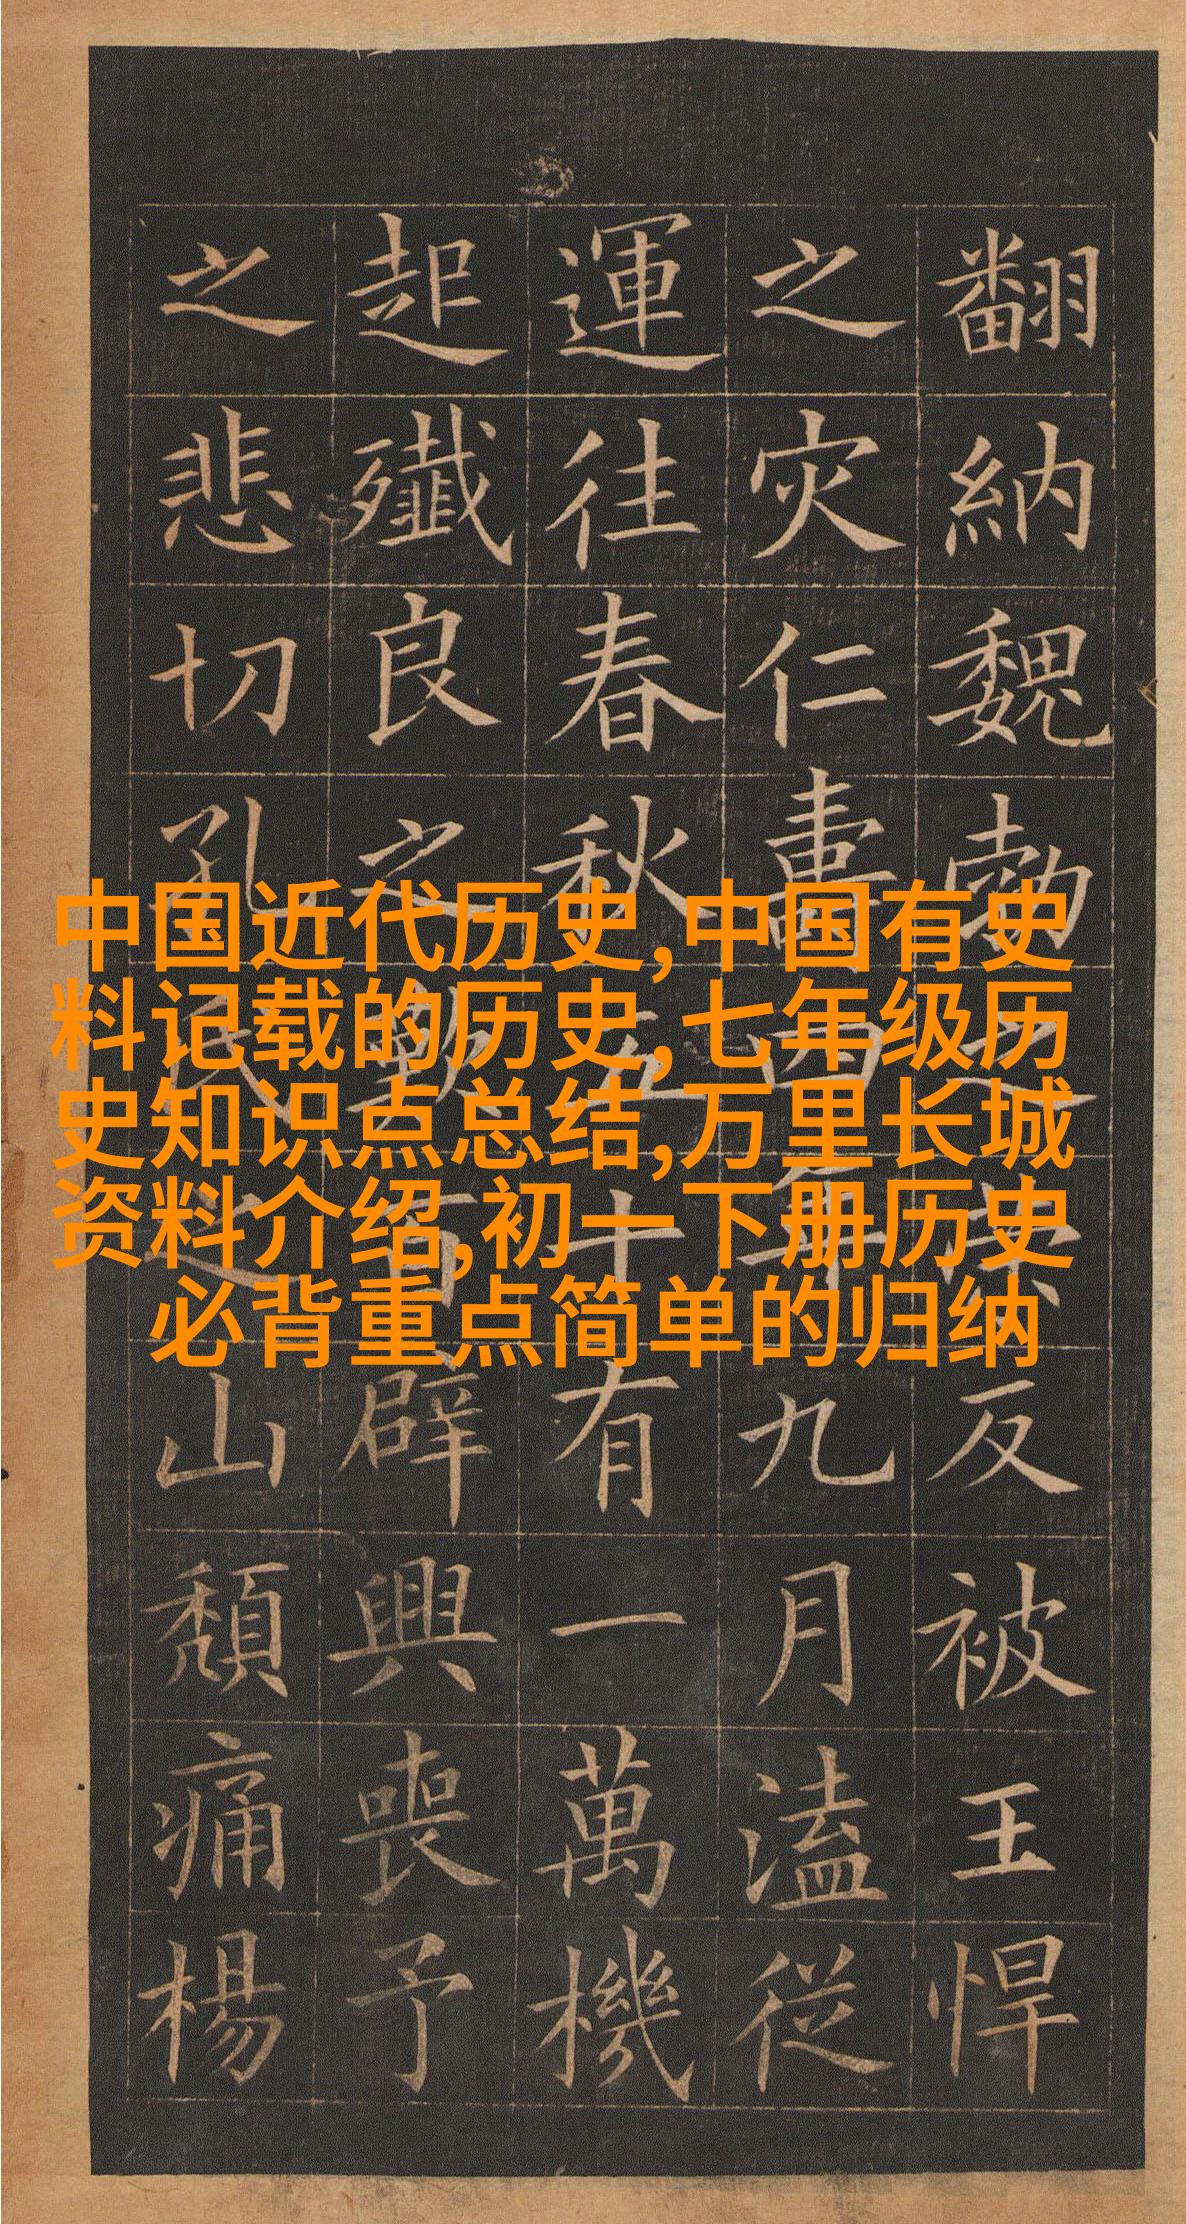 中国近代历史,中国有史
料记载的历史,七年级历
史知识点总结,万里长城
资料介绍,初一下册历史
必背重点简单的归纳
翻納魏勃之反被王悍
之灾仁壽四年九月溘從
運往春秋五十有一萬機
起殲良之歎百辟興喪予
之悲切孔氏之山頹痛楊